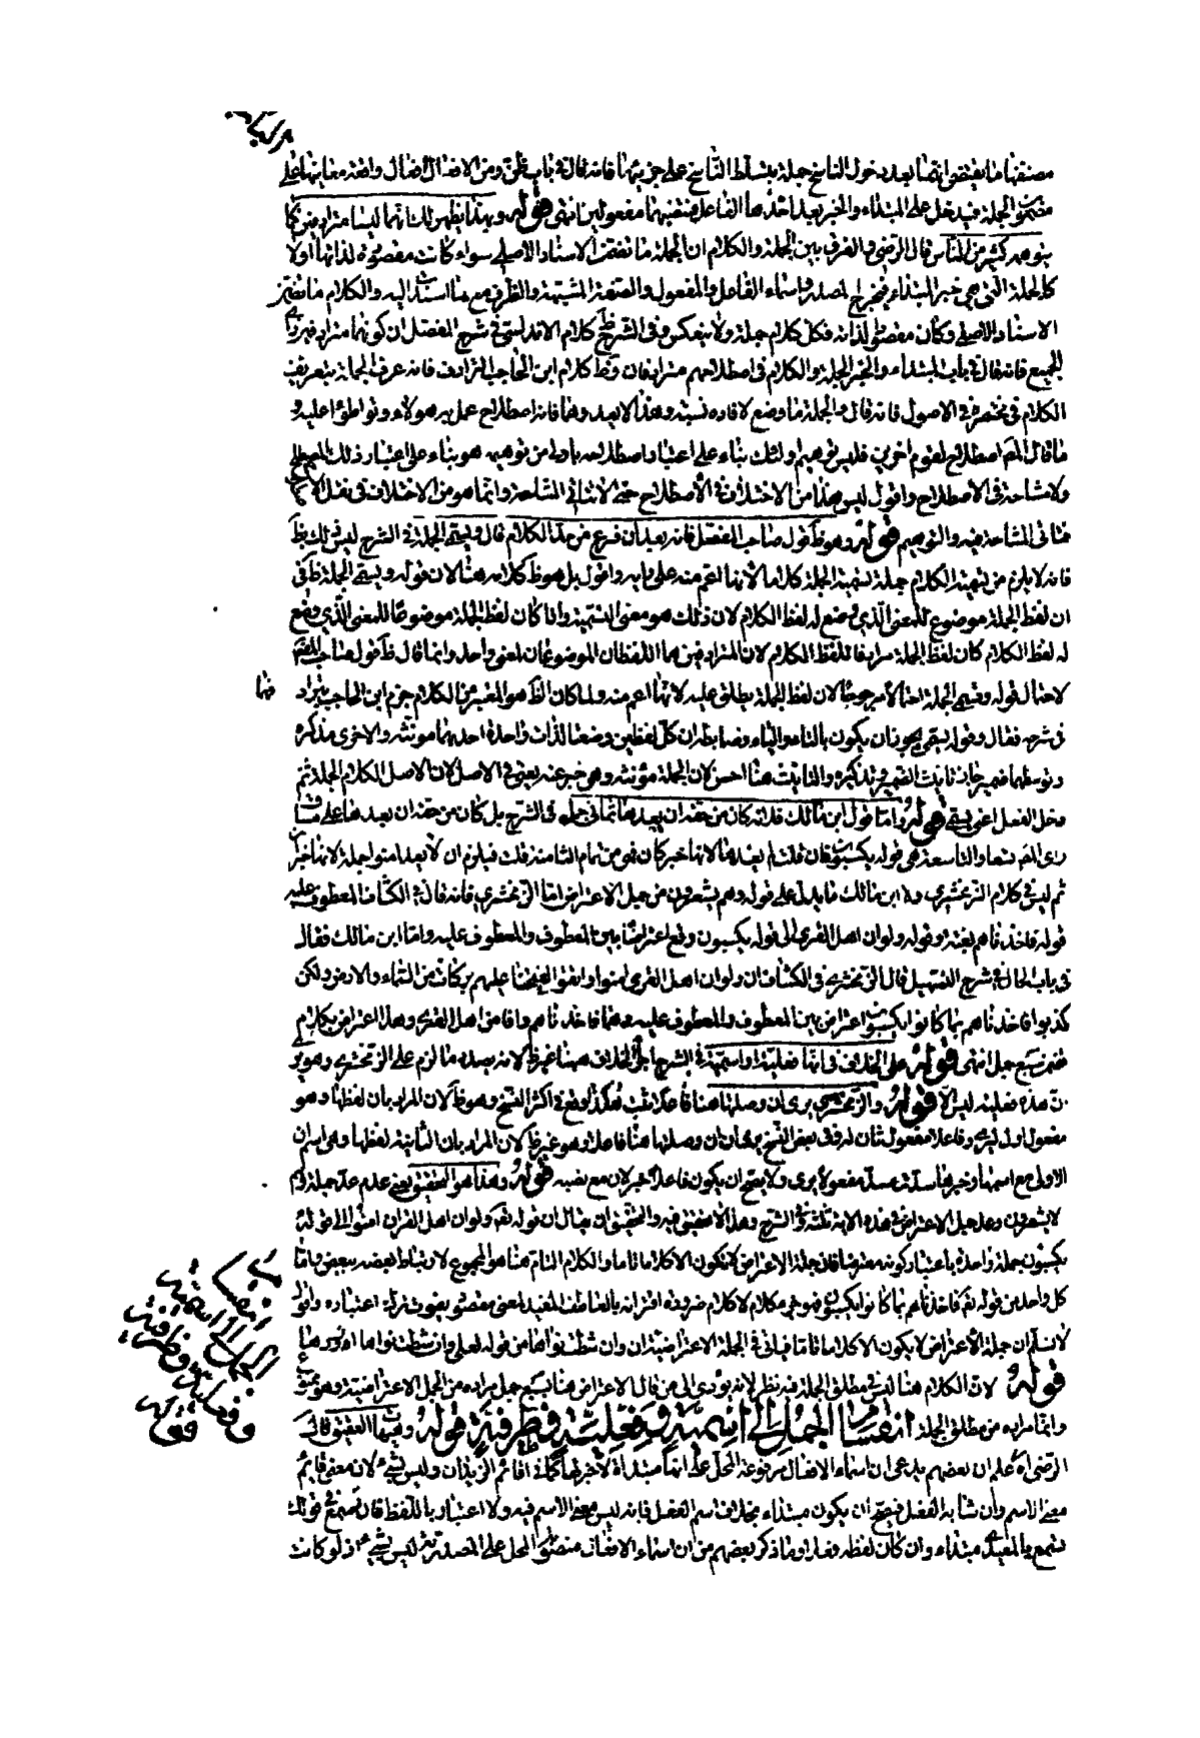 مصنفها ما يقتضي ايضا بعد دخول الناسخ جملة بتسلط الناسخ على جزئيها فانه قال في باب ظن ومن الافعال افعال واقعة معانيها على
مضمون الجملة فيدخل على المبتداء والخبر بعد اخذها الفاعل فتنصبهما مفعولين انتهى قوله وبهذا يظهر لك انهما ليسا مترادفين كما
يتوهمه كثير من الناس قال الرضي والفرق بين الجملة والكلام ان الجملة ما تضمنت الاسناد الاصلي سواء كانت مقصودة لذاتها اولا
كالجملة التي هي خبر المبتداء فيخرج المصدر واسماء الفاعل والمفعول والصفة المشبهة والظرف مع ما اسندت اليه والكلام ما تضمن
الاسناد الاصلي وكان مقصودا لذاته فكل كلام جملة ولا ينعكس وفي الشرح ظ كلام الاندلسي في شرح المفصل ان كونهما مترادفين راى
الجميع فانه قال في باب المبتداء والخبر الجملة والكلام في اصطلاحهم مترادفان وظ كلام ابن الحاجب الترادف فانه عرف الجملة بتعريف
الكلام في مختصره في الاصول فانه قال والجملة ما وضع لافادة نسبة وهذا لا يعد وهما فانه اصطلاح عمل به هولاء وتواطؤا عليه و
ما قال المص اصطلاح لقوم اخرين فليس توهيم اولئك بناء على اعتبار اصطلاحه باولى من توهيمه هو بناء على اعتبار ذلك الاصطلاح
ولا مشاحة في الاصطلاح واقول ليس هذا من الاختلاف في الاصطلاح حتى لا يتاتى المشاحة وانما هو من الاختلاف في نقل الاصطلاح
فتاتى المشاحة فيه والتوهيم قوله وهو ظ قول صاحب المفصل فانه بعد ان فرغ من حد الكلام قال ويسمى الجملة في الشرح ليس ذلك بظ
فانه لا يلزم من تسمية الكلام جملة تسمية الجملة كلاما لانها اعم منه على رايه واقول بل هو ظ كلامه هنا لان قوله ويسمى الجملة ظ في
ان لفظ الجملة موضوع للمعنى الذي وضع له لفظ الكلام لان ذلك هو معنى التسمية واذا كان لفظ الجملة موضوعا للمعنى الذي وضع
له لفظ الكلام كان لفظ الجملة مرادفا للفظ الكلام لان المترادفين هما اللفظان الموضوعان لمعنى واحد وانما قال ظ قول صاحب المفصل
لاحتمال قوله ويسمى الجملة احتمالا مرجوحا لان لفظ الجملة يطلق عليه لانها اعم منه ولما كان الظ هو المعتبر من الكلام جزم ابن الحاجب بترادفهما
في شرحه فقال وقوله يسمى يجوز ان يكون بالتاء والياء وضابطه ان كل لفظين وضعا لذات واحدة احدهما مونثة والاخرى مذكرة
وتوسطهما ضمير جاز تانيث الضمير وتذكيره والتانيث هنا احسن لان الجملة مؤنثة وهي خبر عنه يعني في الاصل لان الاصل الكلام الجملة ثم
دخل الفعل اعني يسمى قوله واما قول ابن مالك فلانه كان من حقه ان يعدها ثماني جمل في الشرح بل كان من حقه ان يعدها على
راى المص تسعا والتاسعة هي قوله يكسبون فان قلت لم يعدها لانها خبر كان فهي من تمام الثامنة قلت فيلزم ان لا يعد امنوا جملة لانها خبر ان
ثم ليس في كلام الزمخشري ولا ابن مالك ما يدل على قوله وهم يشعرون من جمل الاعتراض اما الزمخشري فانه قال في الكشاف المعطوف عليه
قوله فاخذناهم بغتة وقوله ولو ان اهل القرى الى قوله يكسبون وقع اعتراضا بين المعطوف والمعطوف عليه واما ابن مالك فقال
في باب الحال في شرح التسهيل قال الزمخشري في الكشاف ان ولو ان اهل القرى امنوا واتقوا لفتحنا عليهم بركات من السماء والارض ولكن
كذبوا فاخذناهم بما كانوا يكسبون اعتراض بين المعطوف والمعطوف عليه وهما فاخذناهم وافامن اهل القرى وهذا اعتراض بكلام
تضمن سبع جمل انتهى قوله على الخلاف في انها فعلية او اسمية في الشرح اجراء الخلاف ههنا غير ظ لانه بصدد ما لزم على الزمخشري وهو يرى
ان هذه فعلية ليس الا قوله والزمخشري يرى ان وصلتها هنا فاعلا بثبت هكذا وقع في اكثر النسخ وهو ظ لان المراد بان لفظها وهو
مفعول اول ليرى وفاعلا مفعول ثان له وفي بعض النسخ يرى ان ان وصلتها هنا فاعل وهو غير ظ لان المراد بان الثانية لفظها وهي اسم ان
الاولى مع اسمها وخبرها سادة مسد مفعولي يرى ولا يصح ان يكون فاعلا خبر لان مع نصبه قوله وهذا هو التحقيق يعني عدم عد جملة وهم
لا يشعرون وعد جمل الاعتراض في هذه الاية ثلثة في الشرح وهذا لا تحقيق فيه والتحقيق ان يقال ان قوله تعالى ولو ان اهل القرى امنوا الى قوله
يكسبون جملة واحدة باعتبار كونه معترضا فان جملة الاعتراض لا تكون الا كلاما تاما والكلام التام هنا هو المجموع لارتباط بعضه ببعض واما
كل واحد من قوله تعالى فاخذناهم بما كانوا يكسبون فهو جزء كلام لا كلام ضرورة اقترانه بالعاطف المفيد لمعنى مقصود يفوت بترك اعتباره واقول
لا نسلم ان جملة الاعتراض لا يكون الا كلاما تاما
لان الكلام هنا ليس في مطلق الجملة فيه نظر لانه يؤدي الى من قال الاعتراض هنا بسبع جمل مراده من الجمل الاعتراضية وهو ممنوع
وانما مراده من مطلق الجملة انقسام الجمل الى اسمية وفعلية وظرفية قوله وهيهات العقيق قال
الرضي اعلم ان بعضهم يدعي ان اسماء الافعال مرفوعة المحل على انها مبتداة لا خبر لها كما في اقائم الزيدان وليس بشيء لان معنى قائم
معنى الاسم وان شابه الفعل فيصح ان يكون مبتداء بخلاف اسم الفعل فانه ليس معنى الاسم فيه ولا اعتبار باللفظ فان تسمع في قولك
تسمع بالمعيدي مبتداء وان كان لفظه فعلا وما ذكر بعضهم من ان اسماء الافعال منصوبة المحل على المصدرية ليس بشيء اذ لو كانت
انقسام
الجمل الى اسمية
وفعلية وظرفية
قوله